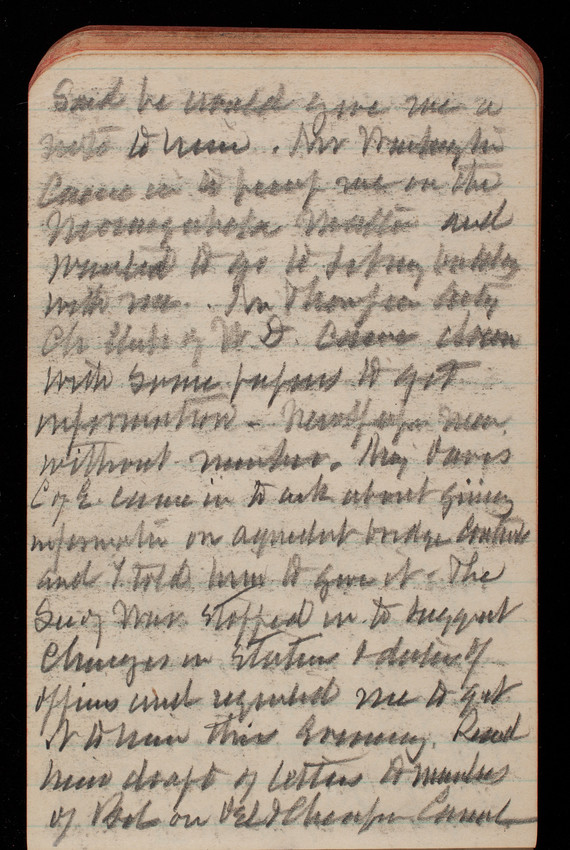 Said he would give me a
note to him. Mr Washington
Came in to pump me on the
Monongahela Matter and
Wanted to go to
with me. Mr Thompson acty
Ch Clerk of W D. came down
with some papers to get
information - Newspaper men
without number. Maj Davis
C of E. came in to ask about giving
information on aqueduct bridge
and I told him to give it - The
Secy War stopped in to suggest
Changes in Stations & duties of
officers and required me to get
it to him this evening. Read
him draft of letters to members
of Bd on Del & Cheasp Canal